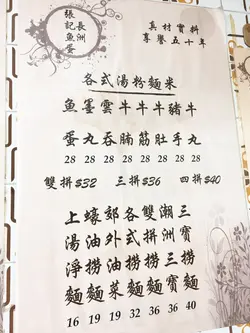 長洲
張記魚蛋
真材實料
享譽五十年
各式湯粉麵米
魚蛋 28
墨丸 28
雲吞 28
牛腩 28
牛筋 28
牛肚 28
豬手 28
牛丸 28
雙拼$32 三拼$36 四拼$40
上湯淨麵 16
蠔油撈麵 19
郊外油菜 19
各式撈麵 32
雙拼撈麵 36
潮洲三寶 36
三寶撈麵 40